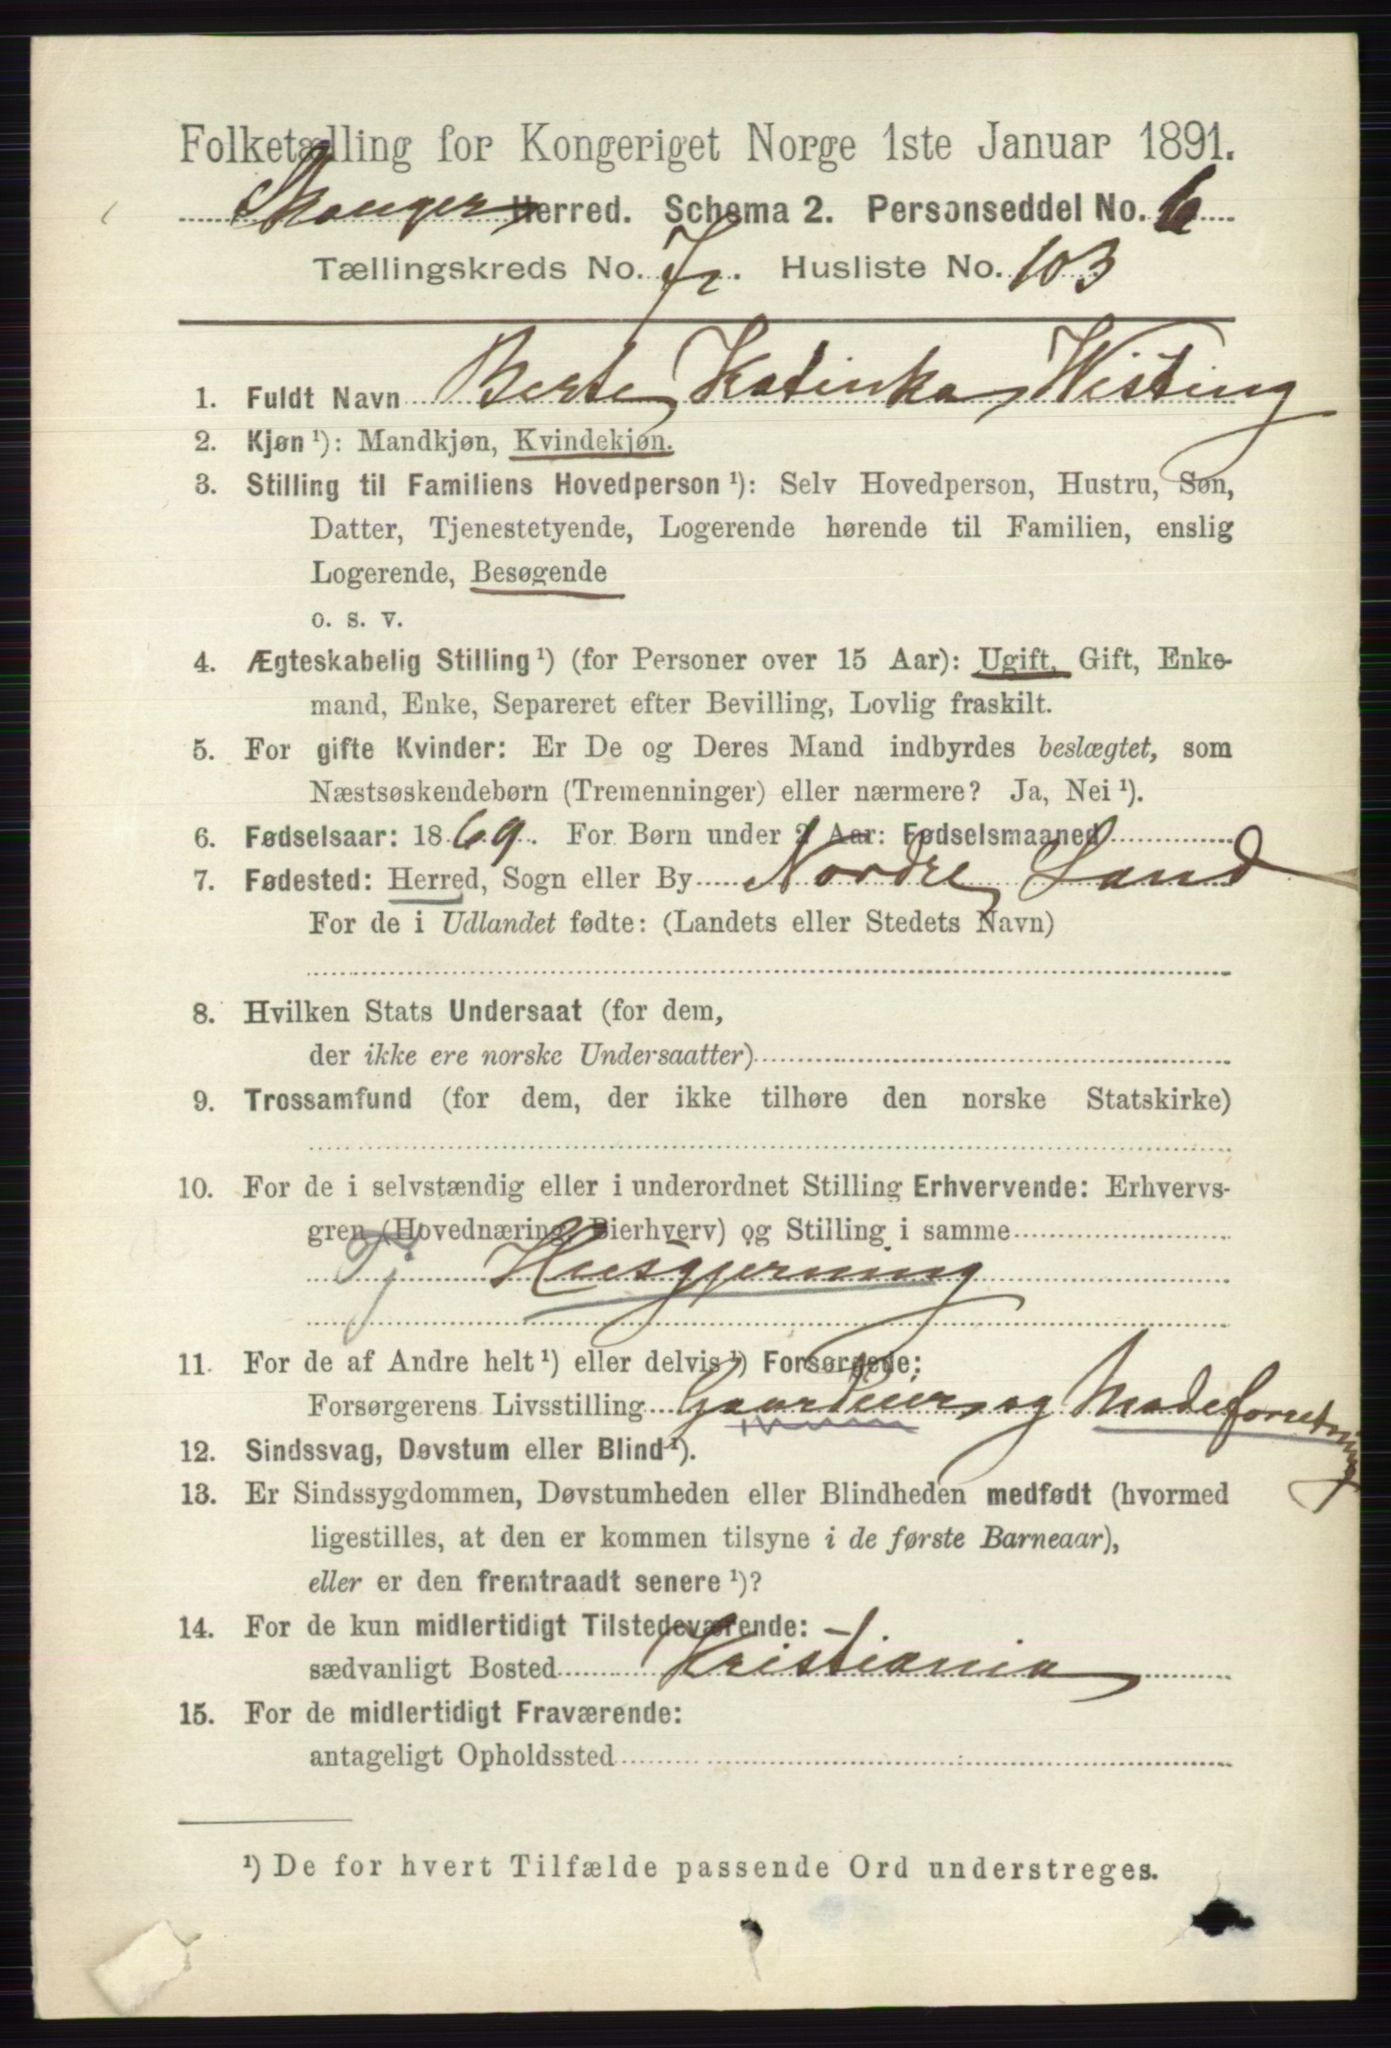 Folketælling for Kongeriget Norge 1ste Januar 1891.
Skouger Herred. Schema 2. Personseddel No. 6
Tællingskreds No. 7. Husliste No. 103
1. Fuldt Navn Berte Katinka Wisting
2. Kjøn ¹): Mandkjøn, Kvindekjøn.
3. Stilling til Familiens Hovedperson ¹): Selv Hovedperson, Hustru, Søn,
Datter, Tjenestetyende, Logerende hørende til Familien, enslig
Logerende, Besøgende
o. s. v.
4. Ægteskabelig Stilling ¹) (for Personer over 15 Aar): Ugift, Gift, Enke-
mand, Enke, Separeret efter Bevilling, Lovlig fraskilt.
5. For gifte Kvinder: Er De og Deres Mand indbyrdes beslægtet, som
Næstsøskendebørn (Tremenninger) eller nærmere? Ja, Nei ¹).
6. Fødselsaar: 1869. For Børn under 2 Aar: Fødselsmaaned
7. Fødested: Herred, Sogn eller By Nordre Land
For de i Udlandet fødte: (Landets eller Stedets Navn)
8. Hvilken Stats Undersaat (for dem,
der ikke ere norske Undersaatter)
9. Trossamfund (for dem, der ikke tilhøre den norske Statskirke)
10. For de i selvstændig eller i underordnet Stilling Erhvervende: Erhvervs-
gren (Hovednæring, Bierhverv) og Stilling i samme
Tj Husgjerning
11. For de af Andre helt ¹) eller delvis ¹) Forsørgede:
Forsørgerens Livsstilling Gaardeier og Modeforretning
12. Sindssvag, Døvstum eller Blind ¹).
13. Er Sindssygdommen, Døvstumheden eller Blindheden medfødt (hvormed
ligestilles, at den er kommen tilsyne i de første Barneaar),
eller er den fremtraadt senere ¹)?
14. For de kun midlertidigt Tilstedeværende:
sædvanligt Bosted Kristiania
15. For de midlertidigt Fraværende:
antageligt Opholdssted
¹) De for hvert Tilfælde passende Ord understreges.